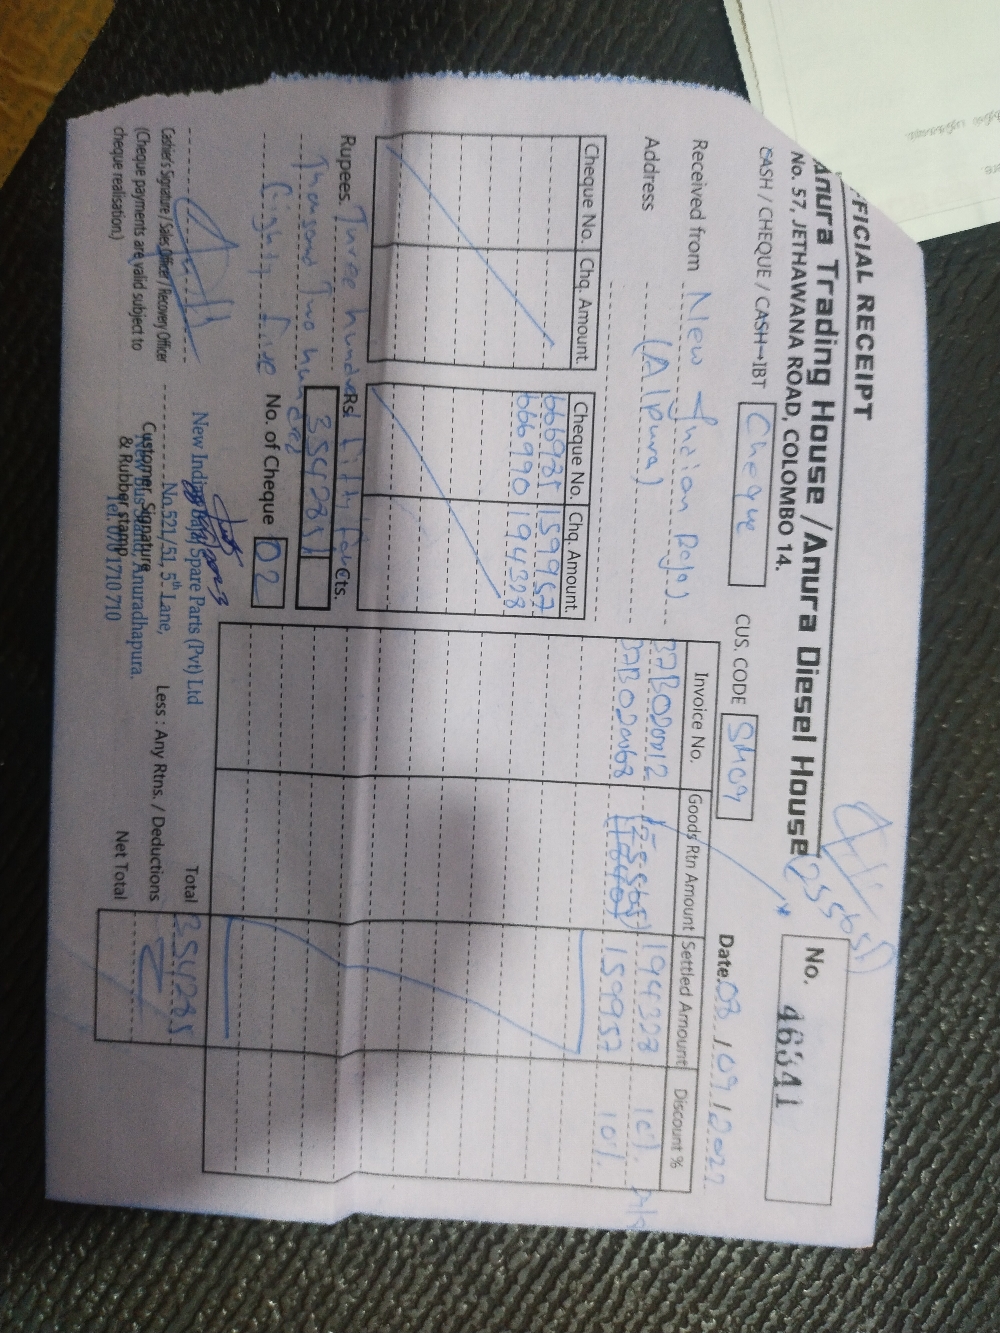 OFFICIAL RECEIPT
Anura Trading House / Anura Diesel House
No. 57, JETHAWANA ROAD, COLOMBO 14.
No. 46341
CASH / CHEQUE / CASH→IBT Cheque
CUS. CODE SM09
Date. 08 / 09 / 2022
Received from New Indian Bajaj
Address (A'Pura)
Cheque No. Chq. Amount. Cheque No. Chq. Amount.
666989 159957
666990 194328
Invoice No. Goods Rtn Amount Settled Amount Discount %
37B020012 194328 10%
159957 10%
Rupees. Three hundred fifty four
Thousand Two hundred
Eighty five
Rs. 354285/ Cts.
No. of Cheque 02
Total 354285
Less : Any Rtns. / Deductions
Net Total
Cashier's Signature / Sales Officer / Recovery Officer
(Cheque payments are valid subject to
cheque realisation.)
Customer Signature
& Rubber stamp
New Indian Bajaj Spare Parts (Pvt) Ltd
No.521/51, 5th Lane,
New Bus Stand, Anuradhapura.
Tel: 0701 710 710